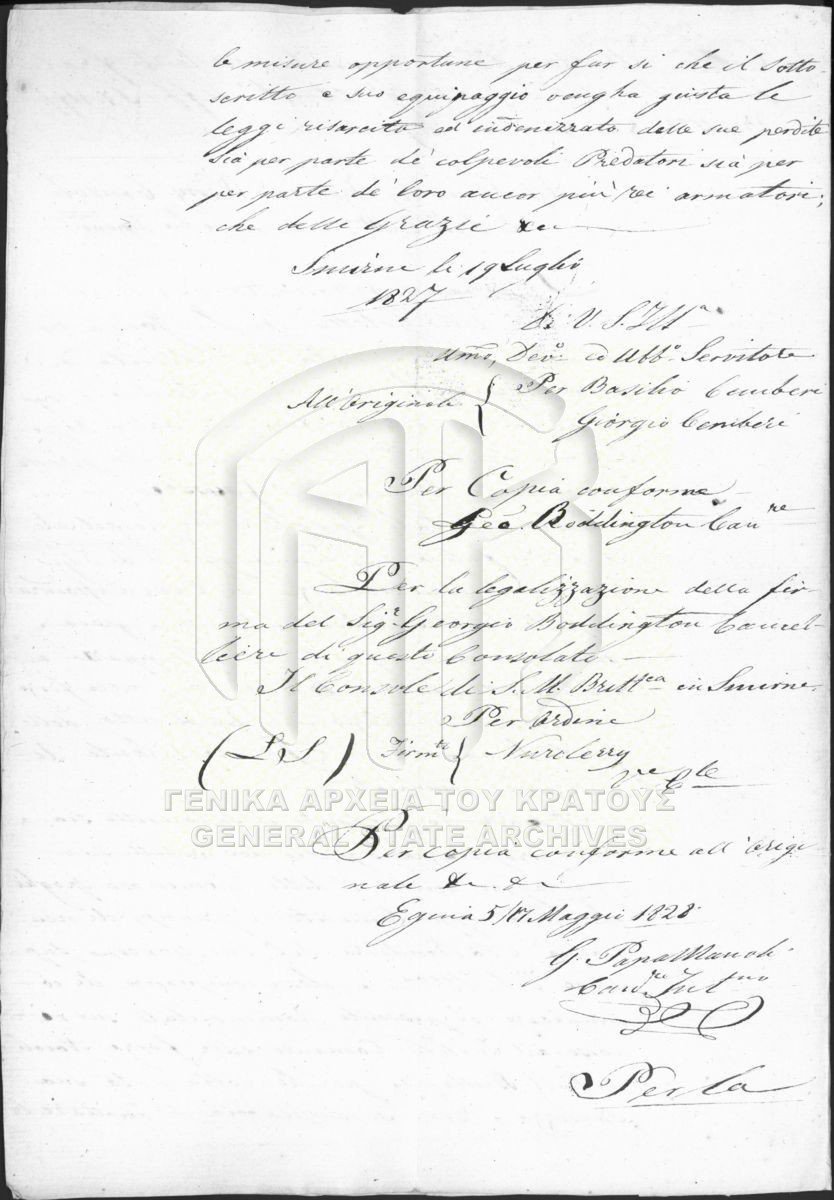 le misure opportune per far si che il sotto-
scritto e suo equipaggio vengha giusta le
leggi risarcito ed indenizzato delle sue perdite
sia per parte de' colpevoli Predatori sia per
per parte de' loro ancor più rei armatori;
che delle Grazie &c
Smirne le 19 Luglio
1827
Di V. S. Illa
Umo, Devo ed Obbo Servitore
All'Originale { Per Basilio Cemberi
Giorgio Cemberi
Per Copia conforme
Geo. Boddington Canre
Per la legalizzazione della fir-
ma del Sigr Georgio Boddington Cancel-
liere di questo Consolato. —
Il Console di S. M. Brittca in Smirne.
Per Ordine
(L S) Firmto {
ΓΕΝΙΚΑ ΑΡΧΕΙΑ ΤΟΥ ΚΡΑΤΟΥΣ
GENERAL STATE ARCHIVES
Per copia conforme all'Origi
nale &c. &c
Egina 5/17 Maggio 1828
G. PapaManoli
Canre Intno
Per la